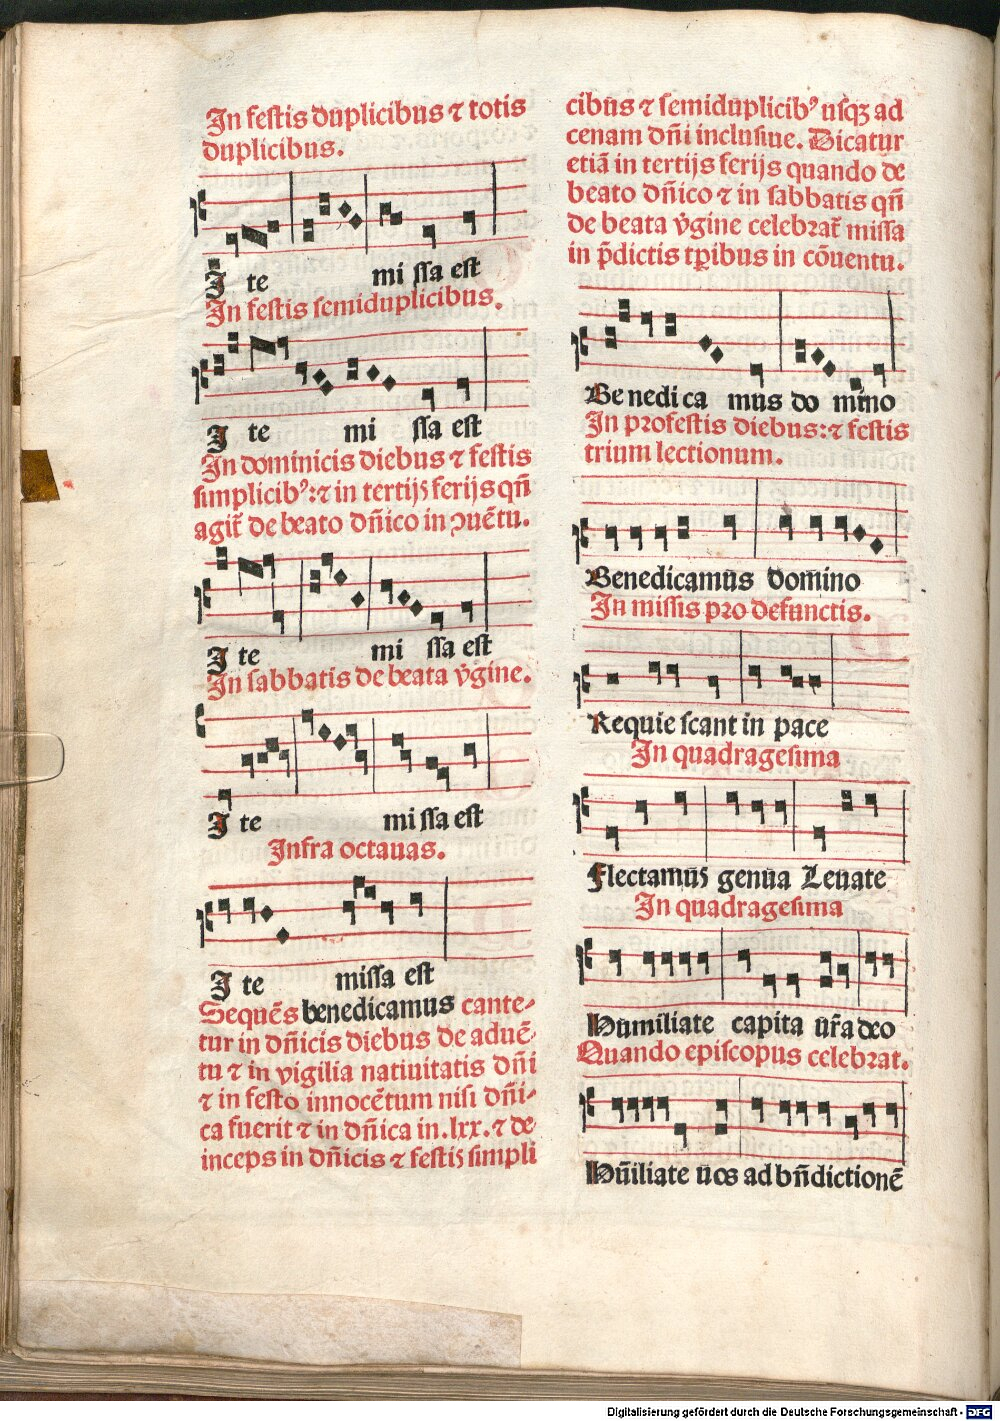 In festis duplicibus ⁊ totis
duplicibus.
I te mi ssa est
In festis semiduplicibus.
I te mi ssa est
In dominicis diebus ⁊ festis
simplicibꝰ:⁊ in tertijs ferijs qn̄
agit̄ de beato dn̄ico in ꝯuētu.
I te mi ssa est
In sabbatis de beata v̄gine.
I te mi ssa est
Infra octauas.
I te missa est
Sequēs benedicamus cante-
tur in dn̄icis diebus de aduē-
tu ⁊ in vigilia natiuitatis dn̄i
⁊ in festo innocētum nisi dn̄i-
ca fuerit ⁊ in dn̄ica in .lxx. ⁊ de-
inceps in dn̄icis ⁊ festis simpli
cibus ⁊ semiduplicibꝰ usqꝫ ad
cenam dn̄i inclusiue. Dicatur
etiā in tertijs ferijs quando de
beato dn̄ico ⁊ in sabbatis qn̄
de beata v̄gine celebrat̄ missa
in p̄dictis tribus in cōuentu.
Be nedi ca mus do mino
In profestis diebus:⁊ festis
trium lectionum.
Benedicamus domino
In missis pro defunctis.
Requie scant in pace
In quadragesima
Flectamus genua Leuate
In quadragesima
Humiliate capita ur̄a deo
Quando episcopus celebrat.
Hūiliate uos ad bn̄dictionē
Digitalisierung gefördert durch die Deutsche Forschungsgemeinschaft - DFG